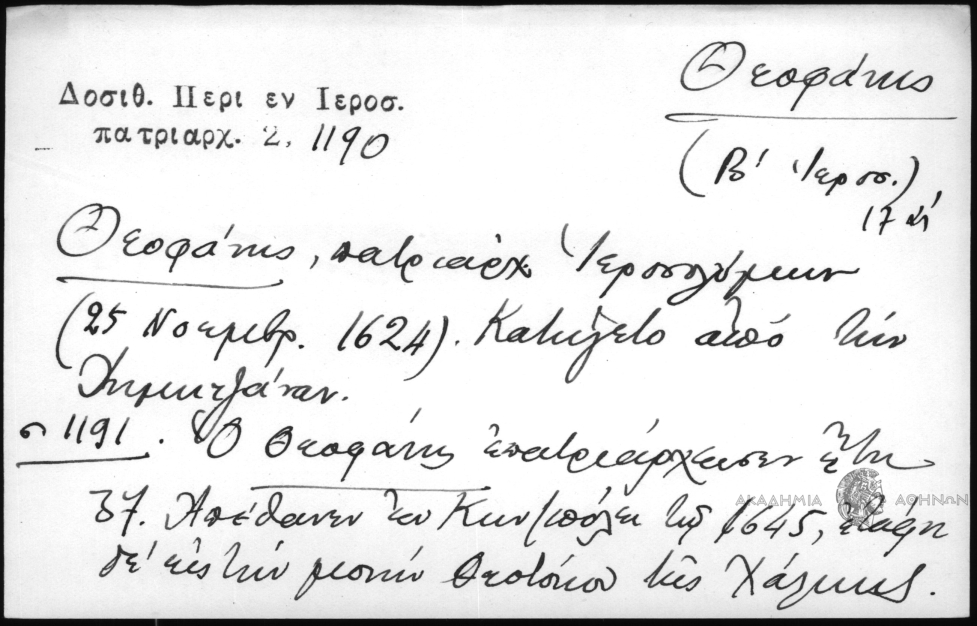 Δοσιθ. Περι εν Ιεροσ.
πατριαρχ. 2, 1190
Θεοφάνης
(Β' Ἱεροσ.)
17 αἰ
Θεοφάνης, πατριάρχ Ἱεροσολύμων
(25 Νοεμβρ. 1624). Κατήγετο ἀπό τήν
Δημητζάναν.
σ 1191. Ὁ Θεοφάνης ἐπατριάρχευσεν ἔτη
37. Ἀπέθανεν ἐν Κων/πόλει τῇ 1645, ἐτάφη
δέ εἰς τήν μονήν Θεοτόκου τῆς Χάλκης.
ΑΚΑΔΗΜΙΑ ΑΘΗΝΩΝ